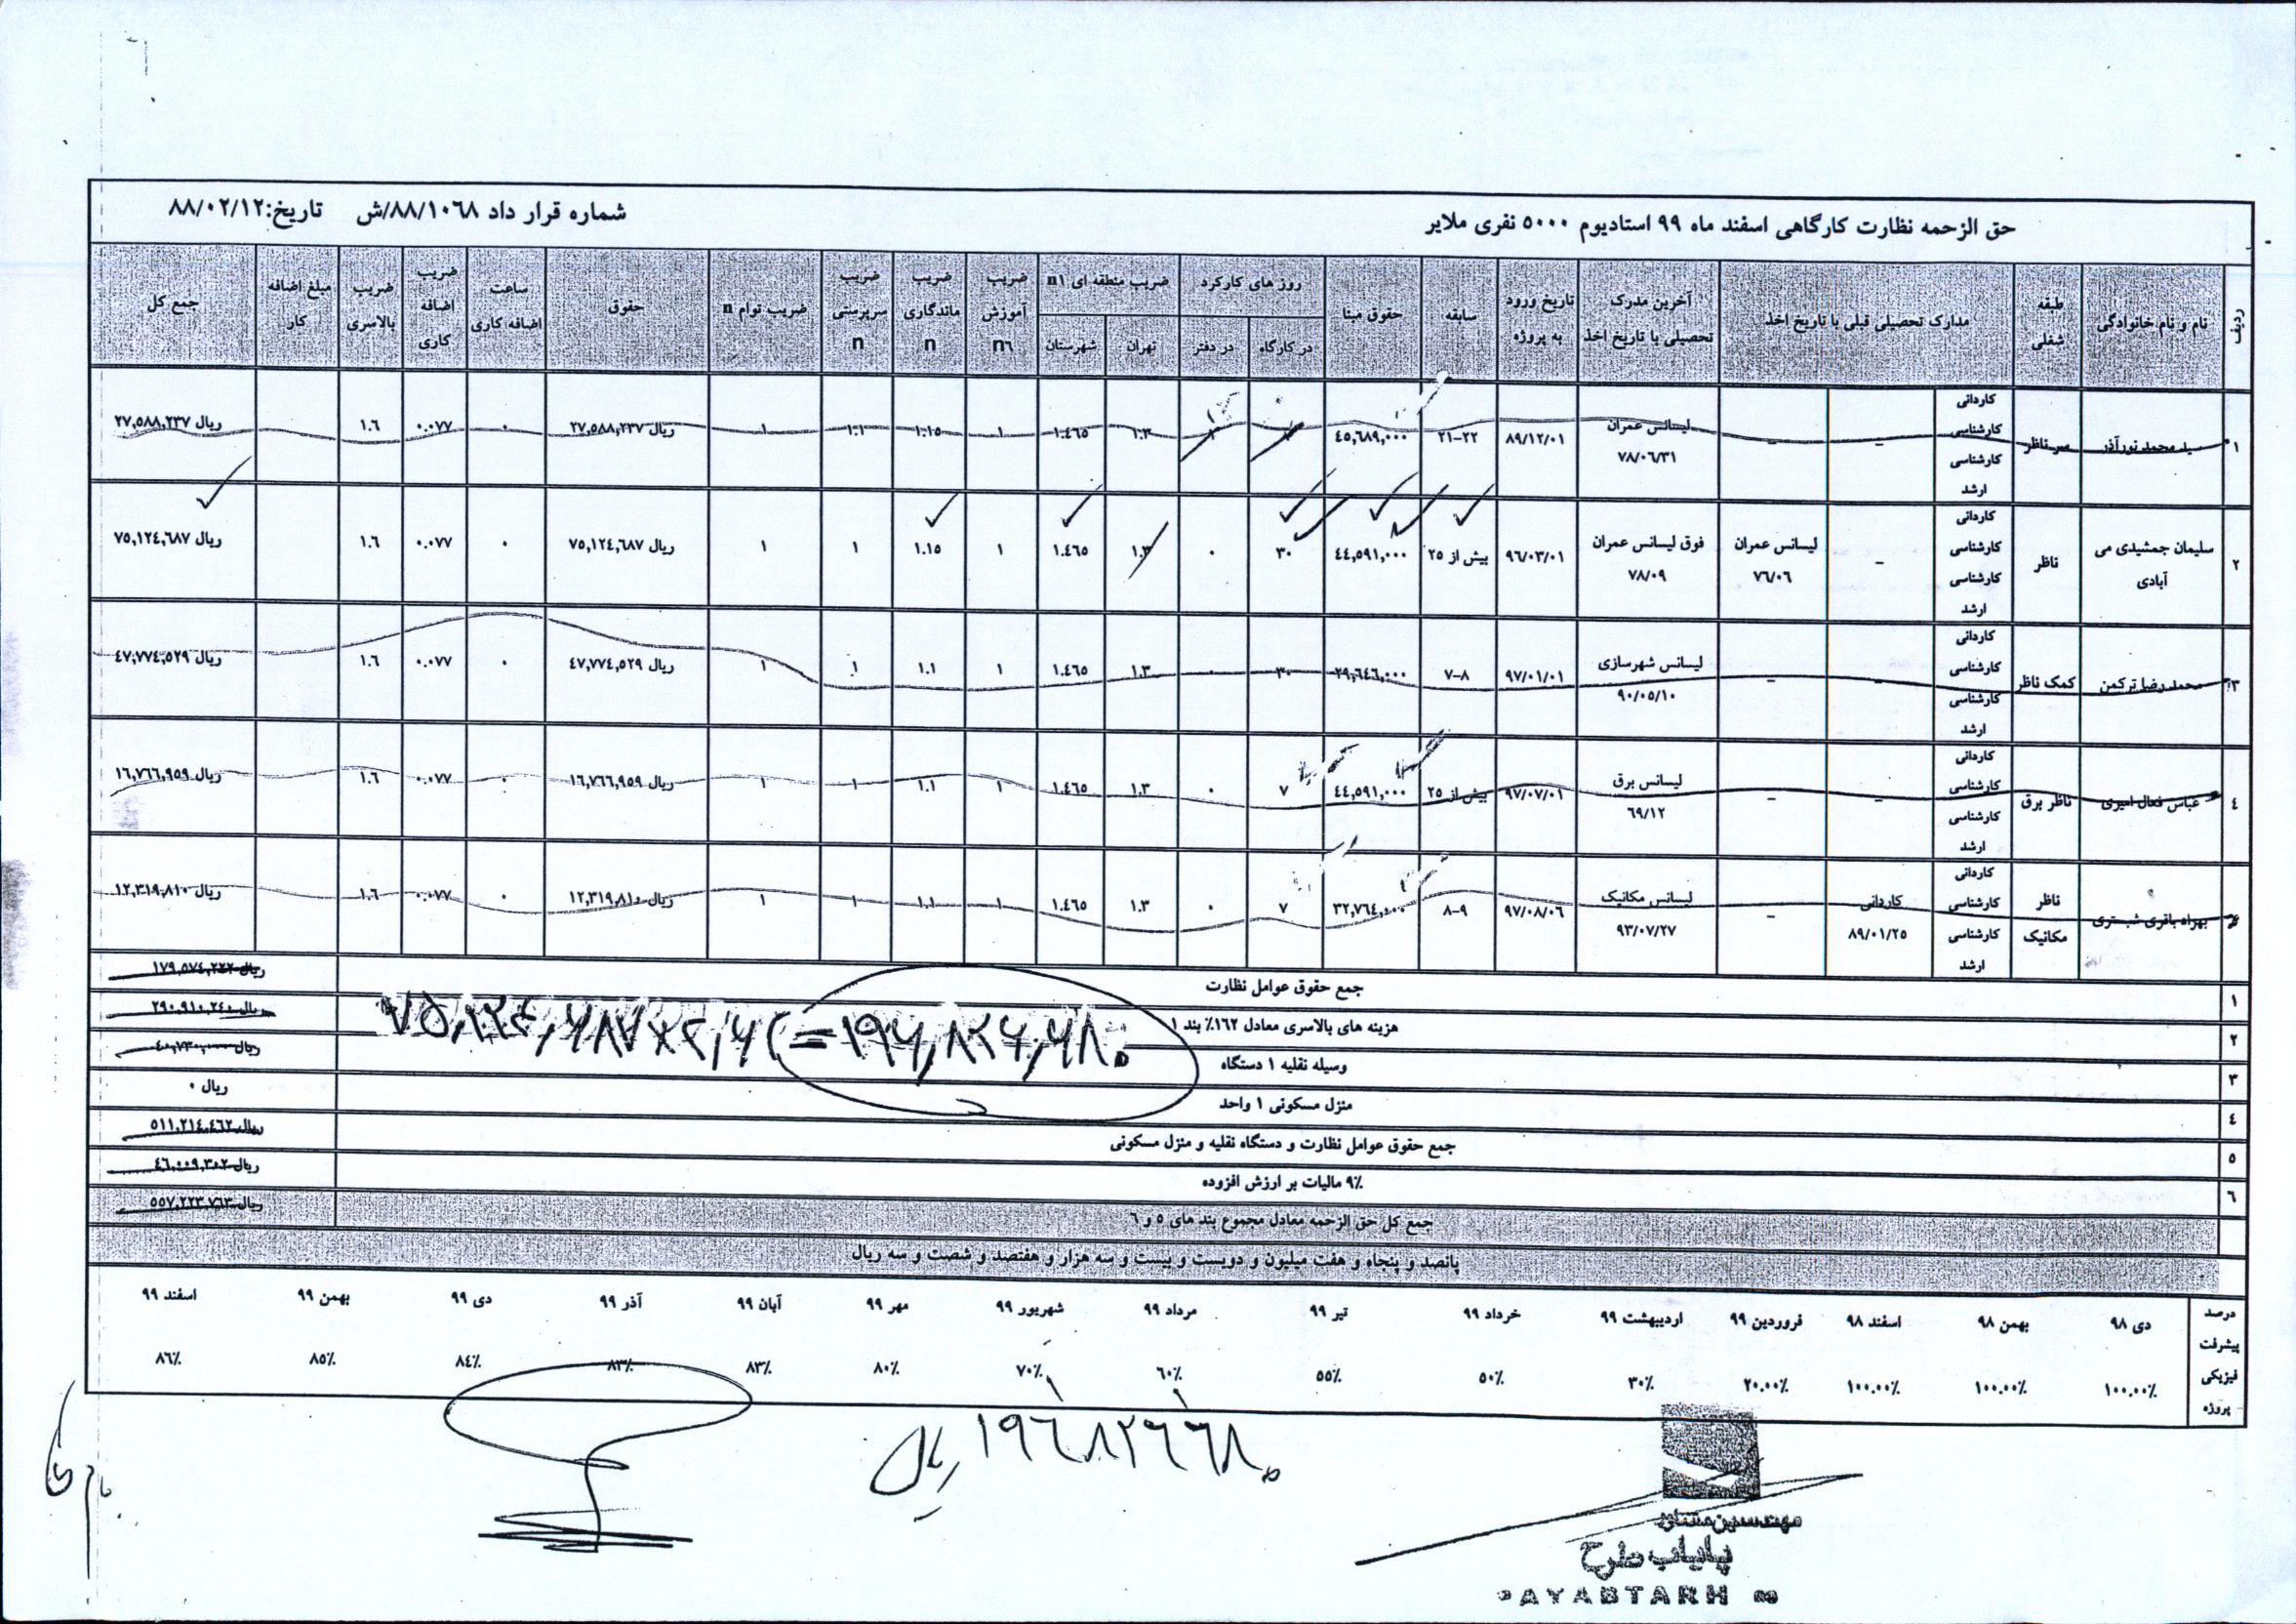 حق الزحمه نظارت کارگاهی اسفند ماه ۹۹ استادیوم ۵۰۰۰ نفری ملایر شماره قرار داد ۸۸/۱۰۶۸/ش تاریخ:۸۸/۰۲/۱۲
ردیف نام و نام خانوادگی طبقه شغلی مدارک تحصیلی قبلی با تاریخ اخذ آخرین مدرک تحصیلی با تاریخ اخذ تاریخ ورود به پروژه سابقه حقوق مبنا روز های کارکرد ضریب منطقه ای n۱ ضریب آموزش n٦ ضریب ماندگاری n ضریب سرپرستی n ضریب توام n حقوق ساعت اضافه کاری ضریب اضافه کاری ضریب بالاسری مبلغ اضافه کار جمع کل
در کارگاه در دفتر تهران شهرستان
۱ سید محمد نورآذر سر ناظر کاردانی کارشناسی کارشناسی ارشد – – لیسانس عمران ۷۸/۰٦/۳۱ ۸۹/۱۲/۰۱ ۲۱-۲۲ ٤٥,٦۸۹,۰۰۰ ۱.۳ ۱.٤٦٥ ۱ ۱.۱٥ ۱.۱ ۱ ریال ۲۷,٥۸۸,۲۳۷ ۰ ۰.۰۷۷ ۱.٦ ریال ۲۷,٥۸۸,۲۳۷
۲ سلیمان جمشیدی می آبادی ناظر کاردانی کارشناسی کارشناسی ارشد – لیسانس عمران ۷٦/۰٦ فوق لیسانس عمران ۷۸/۰۹ ۹٦/۰۳/۰۱ بیش از ۲٥ ٤٤,٥۹۱,۰۰۰ ۳۰ ۰ ۱.۳ ۱.٤٦٥ ۱ ۱.۱٥ ۱ ۱ ریال ۷٥,۱۲٤,٦۸۷ ۰ ۰.۰۷۷ ۱.٦ ریال ۷٥,۱۲٤,٦۸۷
۳ محمد رضا ترکمن کمک ناظر کاردانی کارشناسی کارشناسی ارشد – – لیسانس شهرسازی ۹۰/۰٥/۱۰ ۹۷/۰۱/۰۱ ۷-۸ ۲۹,٦٤٦,۰۰۰ ۳۰ ۰ ۱.۳ ۱.٤٦٥ ۱ ۱.۱ ۱ ۱ ریال ٤۷,۷۷٤,٥۲۹ ۰ ۰.۰۷۷ ۱.٦ ریال ٤۷,۷۷٤,٥۲۹
٤ عباس فعال امیری ناظر برق کاردانی کارشناسی کارشناسی ارشد – – لیسانس برق ٦۹/۱۲ ۹۷/۰۷/۰۱ بیش از ۲٥ ٤٤,٥۹۱,۰۰۰ ۷ ۰ ۱.۳ ۱.٤٦٥ ۱ ۱.۱ ۱ ۱ ریال ۱٦,۷٦٦,۹٥۹ ۰ ۰.۰۷۷ ۱.٦ ریال ۱٦,۷٦٦,۹٥۹
بهراه باقری شبستری ناظر مکانیک کاردانی کارشناسی کارشناسی ارشد کاردانی ۸۹/۰۱/۲٥ – لیسانس مکانیک ۹۳/۰۷/۲۷ ۹۷/۰۸/۰٦ ۸-۹ ۳۲,۷٦٤,۰۰۰ ۷ ۰ ۱.۳ ۱.٤٦٥ ۱ ۱.۱ ۱ ۱ ریال ۱۲,۳۱۹,۸۱۰ ۰ ۰.۰۷۷ ۱.٦ ریال ۱۲,۳۱۹,۸۱۰
۱ جمع حقوق عوامل نظارت ریال ۱۷۹,٥۷٤,۲۲۲
۲ هزینه های بالاسری معادل ۱٦۲٪ بند ۱ ریال ۲۹۰,۹۱۰,۲٤۰
۷۵,۱۲۴,۶۸۷×۲,۶۲=۱۹۶,۸۲۶,۶۸۰
۳ وسیله نقلیه ۱ دستگاه ریال ٤۰,۷۳۰,۰۰۰
٤ منزل مسکونی ۱ واحد ریال ۰
٥ جمع حقوق عوامل نظارت و دستگاه نقلیه و منزل مسکونی ریال ٥۱۱,۲۱٤,٤٦۲
٦ ۹٪ مالیات بر ارزش افزوده ریال ٤٦,۰۰۹,۳۰۲
جمع کل حق الزحمه معادل مجموع بند های ٥ و ٦ ریال ٥٥۷,۲۲۳,۷٦۳
پانصد و پنجاه و هفت میلیون و دویست و بیست و سه هزار و هفتصد و شصت و سه ریال
درصد پیشرفت فیزیکی پروژه دی ۹۸ بهمن ۹۸ اسفند ۹۸ فروردین ۹۹ اردیبهشت ۹۹ خرداد ۹۹ تیر ۹۹ مرداد ۹۹ شهریور ۹۹ مهر ۹۹ آبان ۹۹ آذر ۹۹ دی ۹۹ بهمن ۹۹ اسفند ۹۹
۱۰۰.۰۰٪ ۱۰۰.۰۰٪ ۱۰۰.۰۰٪ ۲۰.۰۰٪ ۳۰٪ ٥۰٪ ٥٥٪ ٦۰٪ ۷۰٪ ۸۰٪ ۸۳٪ ۸۳٪ ۸٤٪ ۸٥٪ ۸٦٪
۱۹٦۸۲٦٦۸۰ ریال
مهندسین مشاور
پایاب طرح
PAYABTARH